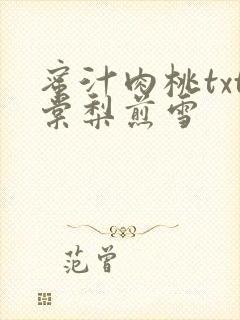 蜜汁肉桃txt
棠梨煎雪
范曾